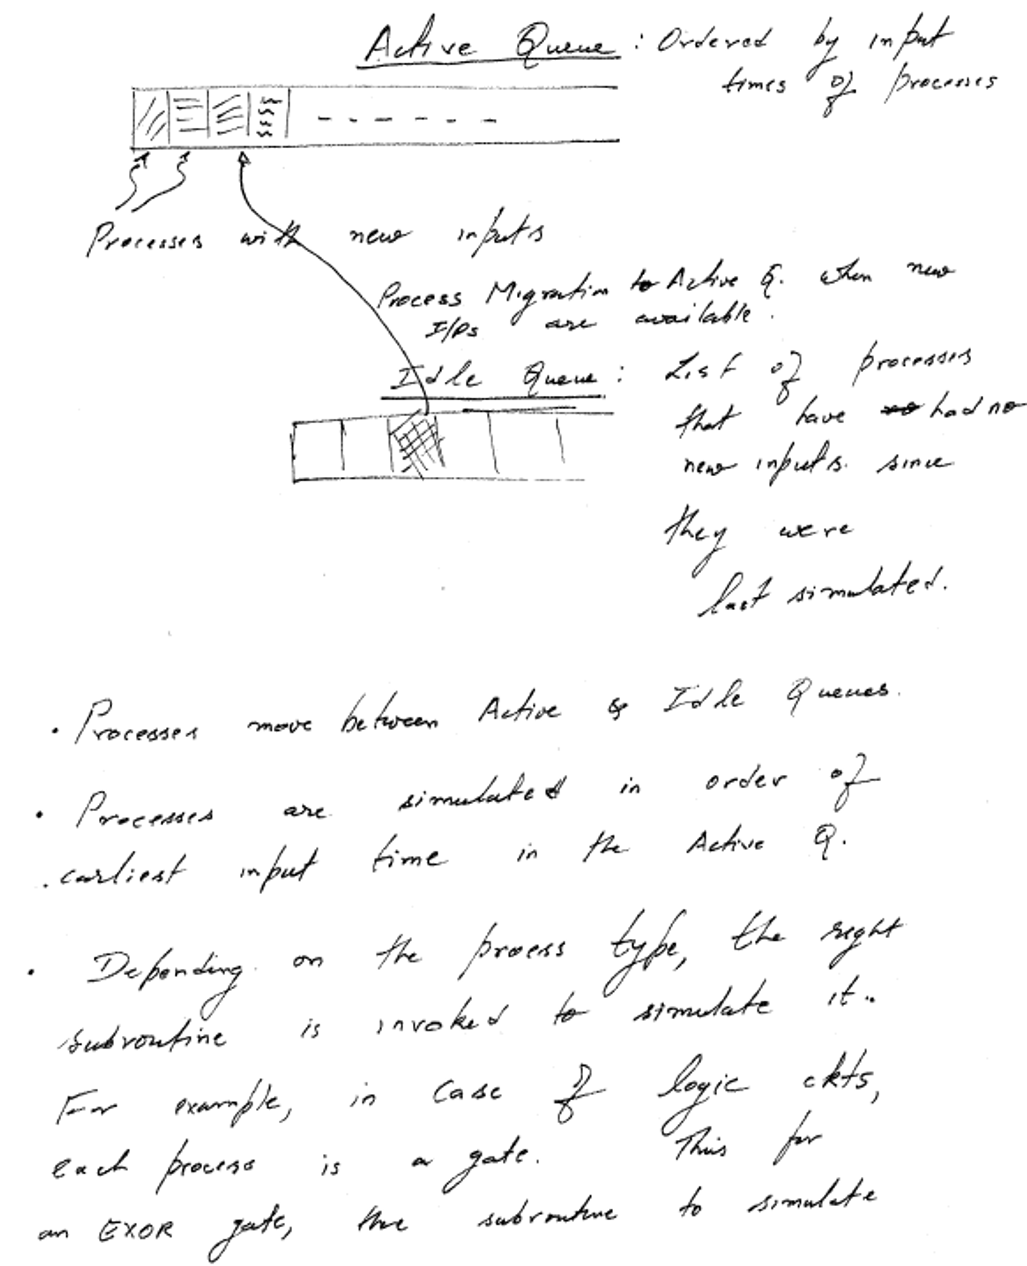 Active Queue : Ordered by input
times of processes
Processes with new inputs
Process Migration to Active Q. when new
I/Ps are available.
Idle Queue : List of processes
that have had no
new inputs. since
they were
last simulated.
· Processes move between Active & Idle Queues.
· Processes are simulated in order of
earliest input time in the Active Q.
· Depending on the process type, the right
subroutine is invoked to simulate it..
For example, in case of logic ckts,
each process is a gate. Thus for
an EXOR gate, the subroutine to simulate